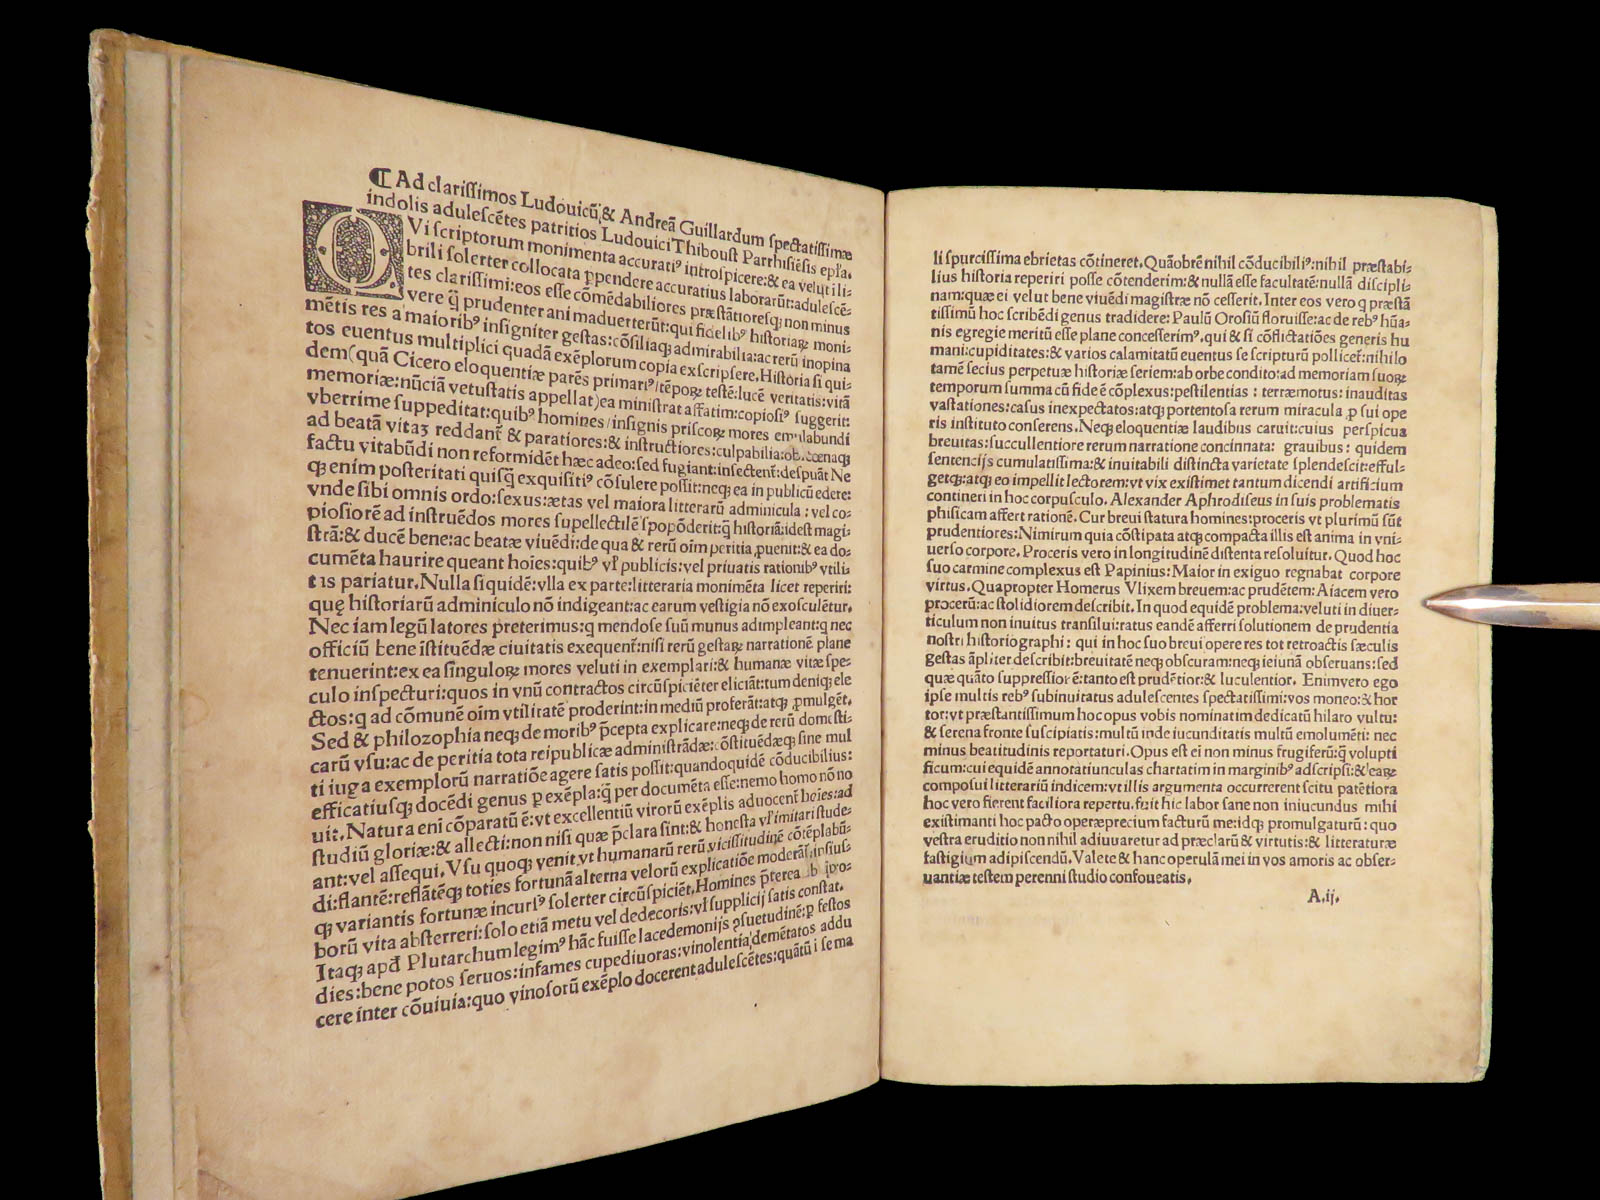 ¶ Ad clarissimos Ludouicū & Andreā Guillardum spectatissimæ
indolis adulescētes patritios Ludouici Thiboust Parrhisiēsis epl̄a.
QVi scriptorum monimenta accurati⁹ introspicere: & ea velut ili-
brili solerter collocata ꝑpendere accuratius laborarūt: adulescē-
tes clarissimi: eos esse cōmēdabiliores præstātioresqꝫ non minus
vere q̄ꝫ prudenter animaduerterūt: qui fidelib⁹ historiaꝝ moni-
mētis res a maiorib⁹ insigniter gestas: cōsiliaqꝫ admirabilia: ac rerū inopina
tos euentus multiplici quadā exēplorum copia exscripsere. Historia si qui-
dem (quā Cicero eloquentiæ parēs primari⁹/tēpoꝝ testē: lucē veritatis: vitā
memoriæ: nūciā vetustatis appellat) ea ministrat affatim: copiosi⁹ suggerit:
vberrime suppeditat: quib⁹ homines/insignis priscoꝝ mores emulabundi
ad beatā vitaꝫ reddant̄ & paratiores: & instructiores: culpabilia: ob cœnaqꝫ
factu vitabūdi non reformidēt hæc adeo: sed fugiant: insectent̄: despuāt Ne
qꝫ enim posteritati quisq̄ exquisiti⁹ cōsulere possit: neqꝫ ea in publicū edere:
vnde sibi omnis ordo: sexus: ætas vel maiora litterarū adminicula: vel co-
piosiorē ad instruēdos mores supellectilē spopōderit: q̄ historiā: idest magi-
strā: & ducē bene: ac beatæ viuēdi: de qua & rerū oīm peritia ꝓuenit: & ea do-
cumēta haurire queant hoīes: quib⁹ vl̄ publicis: vel priuatis rationib⁹ vtili-
tas pariatur. Nulla siquidē: vlla ex parte: litteraria monimēta licet reperiri:
quę historiarū adminiculo nō indigeant: ac earum vestigia nō exosculētur.
Nec iam legū latores preterimus: q mendose suū munus adimpleant: q nec
officiū bene īstituēdæ ciuitatis exequent̄: nisi rerū gestaꝝ narrationē plane
tenuerint: ex ea singuloꝝ mores veluti in exemplari: & humanæ vitæ spe-
culo inspecturi: quos in vnū contractos circūspiciēter eliciāt: tum deniqꝫ ele
ctos: q ad cōmunē oīm vtilitatē proderint: in mediū proferāt: atqꝫ ꝓmulgēt.
Sed & philozophia neqꝫ de morib⁹ p̄cepta explicare: neqꝫ de rerū domesti-
carū vsu: ac de peritia tota reipublicæ administrādæ: cōstituēdæqꝫ sine mul
ti iuga exemplorū narratiōe agere satis possit: quandoquidē cōducibilius:
efficatiusqꝫ docēdi genus ꝑ exēpla: q̄ per documēta esse: nemo homo nō no
uit. Natura enī cōparatū ē: vt excellentiū virorū exēplis aduocent̄ hoīes: ad
studiū gloriæ: & allecti: non nisi quæ p̄clara sint: & honesta vl̄ imitari stude-
ant: vel assequi. Vsu quoqꝫ venit vt humanarū rerū vicissitudinē cōtēplabū-
di: flantē: reflātēqꝫ toties fortunā alterna velorū explicatiōe moderāt̄: ipsius-
qꝫ variantis fortunæ incurs⁹ solerter circūspiciēt. Homines p̄terea ab īpro-
borū vita absterreri: solo etiā metu vel dedecoris: vl̄ supplicij satis constat.
Itaqꝫ apđ Plutarchum legim⁹ hāc fuisse lacedemonijs ꝯsuetudinē: ꝑ festos
dies: bene potos seruos: infames cupediuoras: vinolentia demētatos addu
cere inter cōuiuia: quo vinosorū exēplo docerent adulescētes: quātū i se ma
li spurcissima ebrietas cōtineret. Quāobrē nihil cōducibili⁹: nihil præstabi-
lius historia reperiri posse cōtenderim: & nullā esse facultatē: nullā discipli-
nam: quæ ei velut bene viuēdi magistræ nō cesserit. Inter eos vero q præstā
tissimū hoc scribēdi genus tradidere: Paulū Orosiū floruisse: ac de reb⁹ hūa-
nis egregie meritū esse plane concesserim⁹. qui & si cōflictatiōes generis hu
mani: cupiditates: & varios calamitatū euentus se scripturū pollicet̄: nihilo
tamē secius perpetuæ historiæ seriem: ab orbe condito: ad memoriam suoꝝ
temporum summa cū fide ē cōplexus: pestilentias: terræmotus: inauditas
vastationes: casus inexpectatos: atqꝫ portentosa rerum miracula ꝓ sui ope
ris instituto conserens. Neqꝫ eloquentiæ laudibus caruit: cuius perspicua
breuitas: succullentiore rerum narratione concinnata: grauibus: quidem
sentencijs cumulatissima: & inuitabili distincta varietate splendescit: efful-
getqꝫ: atqꝫ eo impellit lectorem: vt vix existimet tantum dicendi artificium
contineri in hoc corpusculo. Alexander Aphrodiseus in suis problematis
phisicam affert rationē. Cur breui statura homines: proceris vt plurimū sūt
prudentiores: Nimirum quia cōstipata atqꝫ compacta illis est anima in vni-
uerso corpore. Proceris vero in longitudinē distenta resoluitur. Quod hoc
suo carmine complexus est Papinius: Maior in exiguo regnabat corpore
virtus. Quapropter Homerus Vlixem breuem: ac prudētem: Aiacem vero
procerū: ac stolidiorem describit. In quod equidē problema: veluti in diuer-
ticulum non inuitus transilui: ratus eandē afferri solutionem de prudentia
nostri historiographi: qui in hoc suo breui opere res tot retroactis sæculis
gestas āpliter describit: breuitatē neqꝫ obscuram: neqꝫ ieiunā obseruans: sed
quæ quāto suppressior ē: tanto est prudētior: & luculentior. Enimvero ego
ipse multis reb⁹ subinuitatus adulescentes spectatissimi: vos moneo: & hor
tor: vt præstantissimum hoc opus vobis nominatim dedicatū hilaro vultu:
& serena fronte suscipiatis: multū inde iucunditatis multū emolumēti: nec
minus beatitudinis reportaturi. Opus est ei non minus frugiferū: q̄ volupti
ficum: cui equidē annotatiunculas chartatim in marginib⁹ adscripsi: & eaꝝ
composui litterariū indicem: vt illis argumenta occurrerent scitu patētiora
hoc vero fierent faciliora repertu. fuit hic labor sane non iniucundus mihi
existimanti hoc pacto operæprecium facturū me: idqꝫ promulgaturū: quo
vestra eruditio non nihil adiuuaretur ad præclarū & virtutis: & litteraturæ
fastigium adipiscendū. Valete & hanc operulā mei in vos amoris ac obser-
uantiæ testem perenni studio confoueatis.
A.ij.